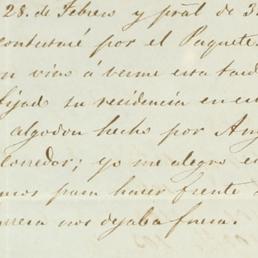 28. de Febrero y pral de 3
contesté por el Paquete
n vino á verme esta tard
fijado su residencia en es
algodon hecho por Ang
Corredor; yo me alegro e
mos para hacer frente
rrera nos dejaba fuera.